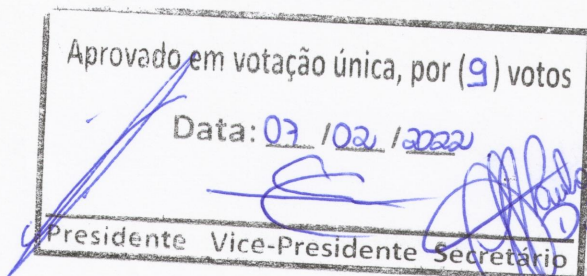 Aprovado em votação única, por (9) votos
Data: 07 / 02 / 2022
Presidente Vice-Presidente Secretário